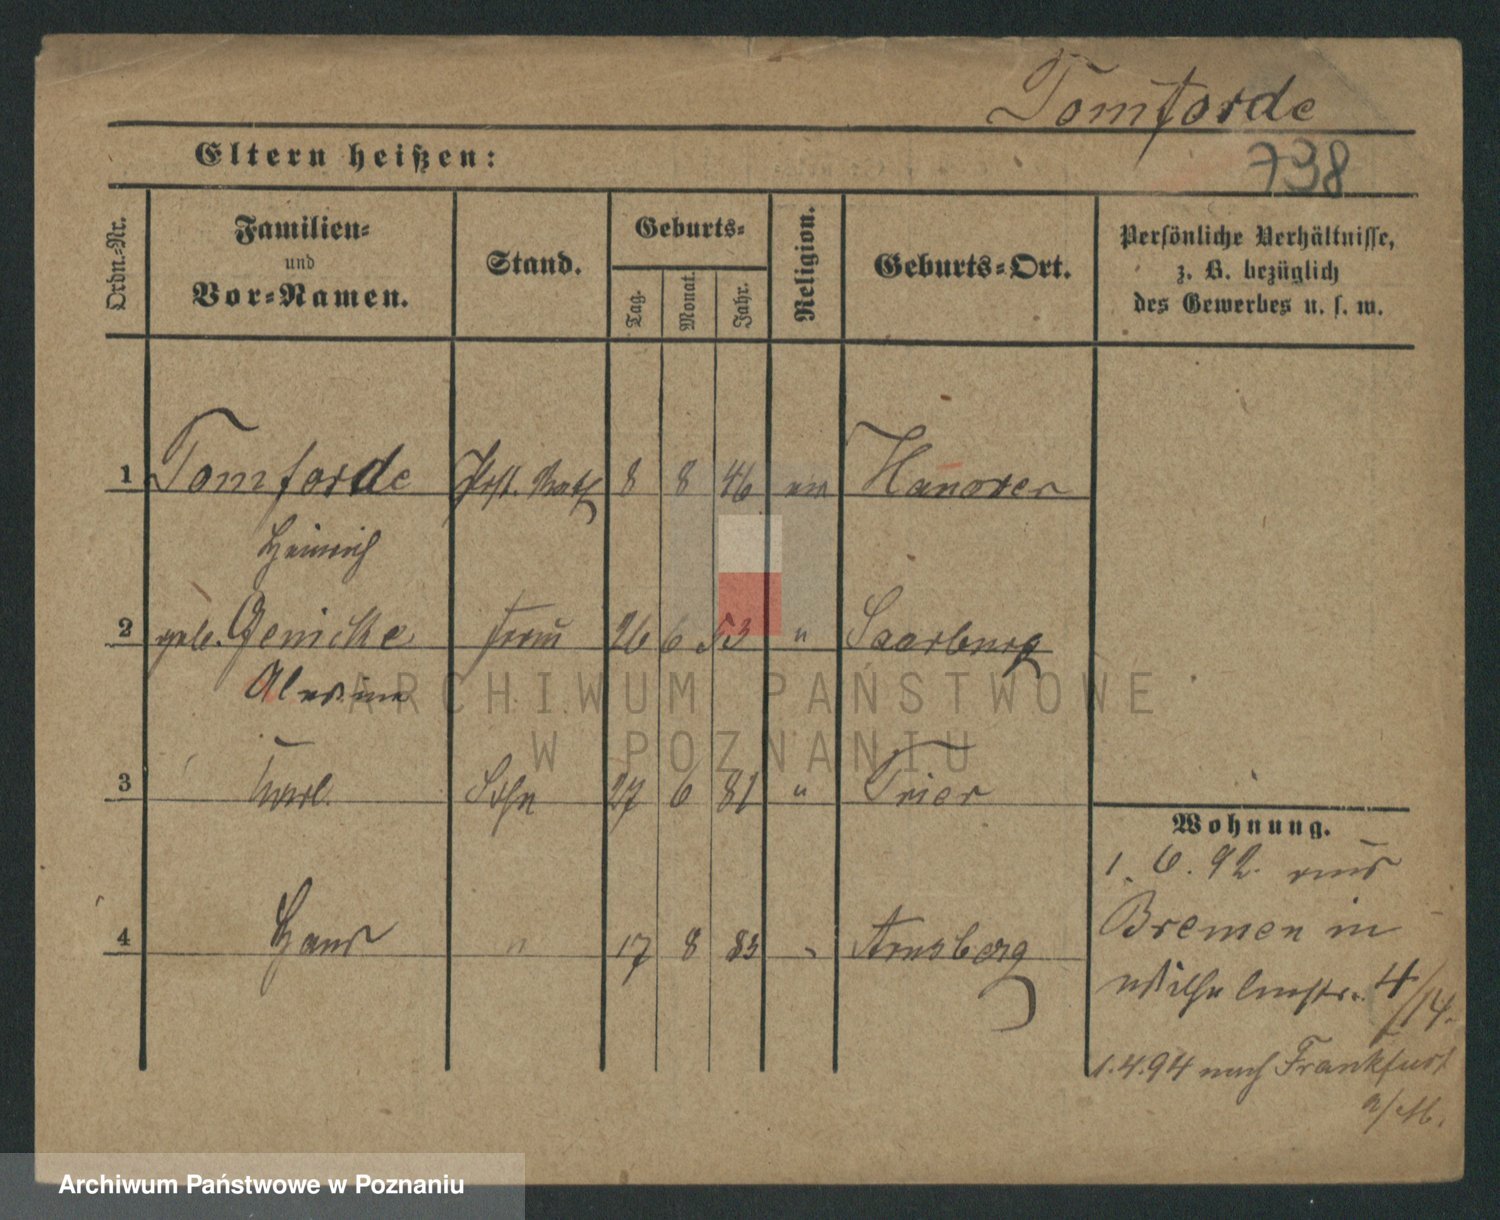 Tomforde
738
Eltern heißen:
Ordn.-Nr.
Familien-
und
Vor-Namen.
Stand.
Geburts-
Tag.
Monat.
Jahr.
Religion.
Geburts-Ort.
Persönliche Verhältnisse,
z. B. bezüglich
des Gewerbes u. s. w.
1 Tomforde Post. Rath 8 8 46 ev Hanover
Heinrich
2 geb. Genicke Frau 26 6 53 " Saarburg
3 Karl. Sohn 27 6 81 " Trier
4 Hans " 17 8 83 " Arnsberg
Wohnung.
1. 6. 92. aus
Bremen in
Wilhelmstr. 4/14.
1.4.94 nach Frankfurt
a/M.
ARCHIWUM PAŃSTWOWE
W POZNANIU
Archiwum Państwowe w Poznaniu